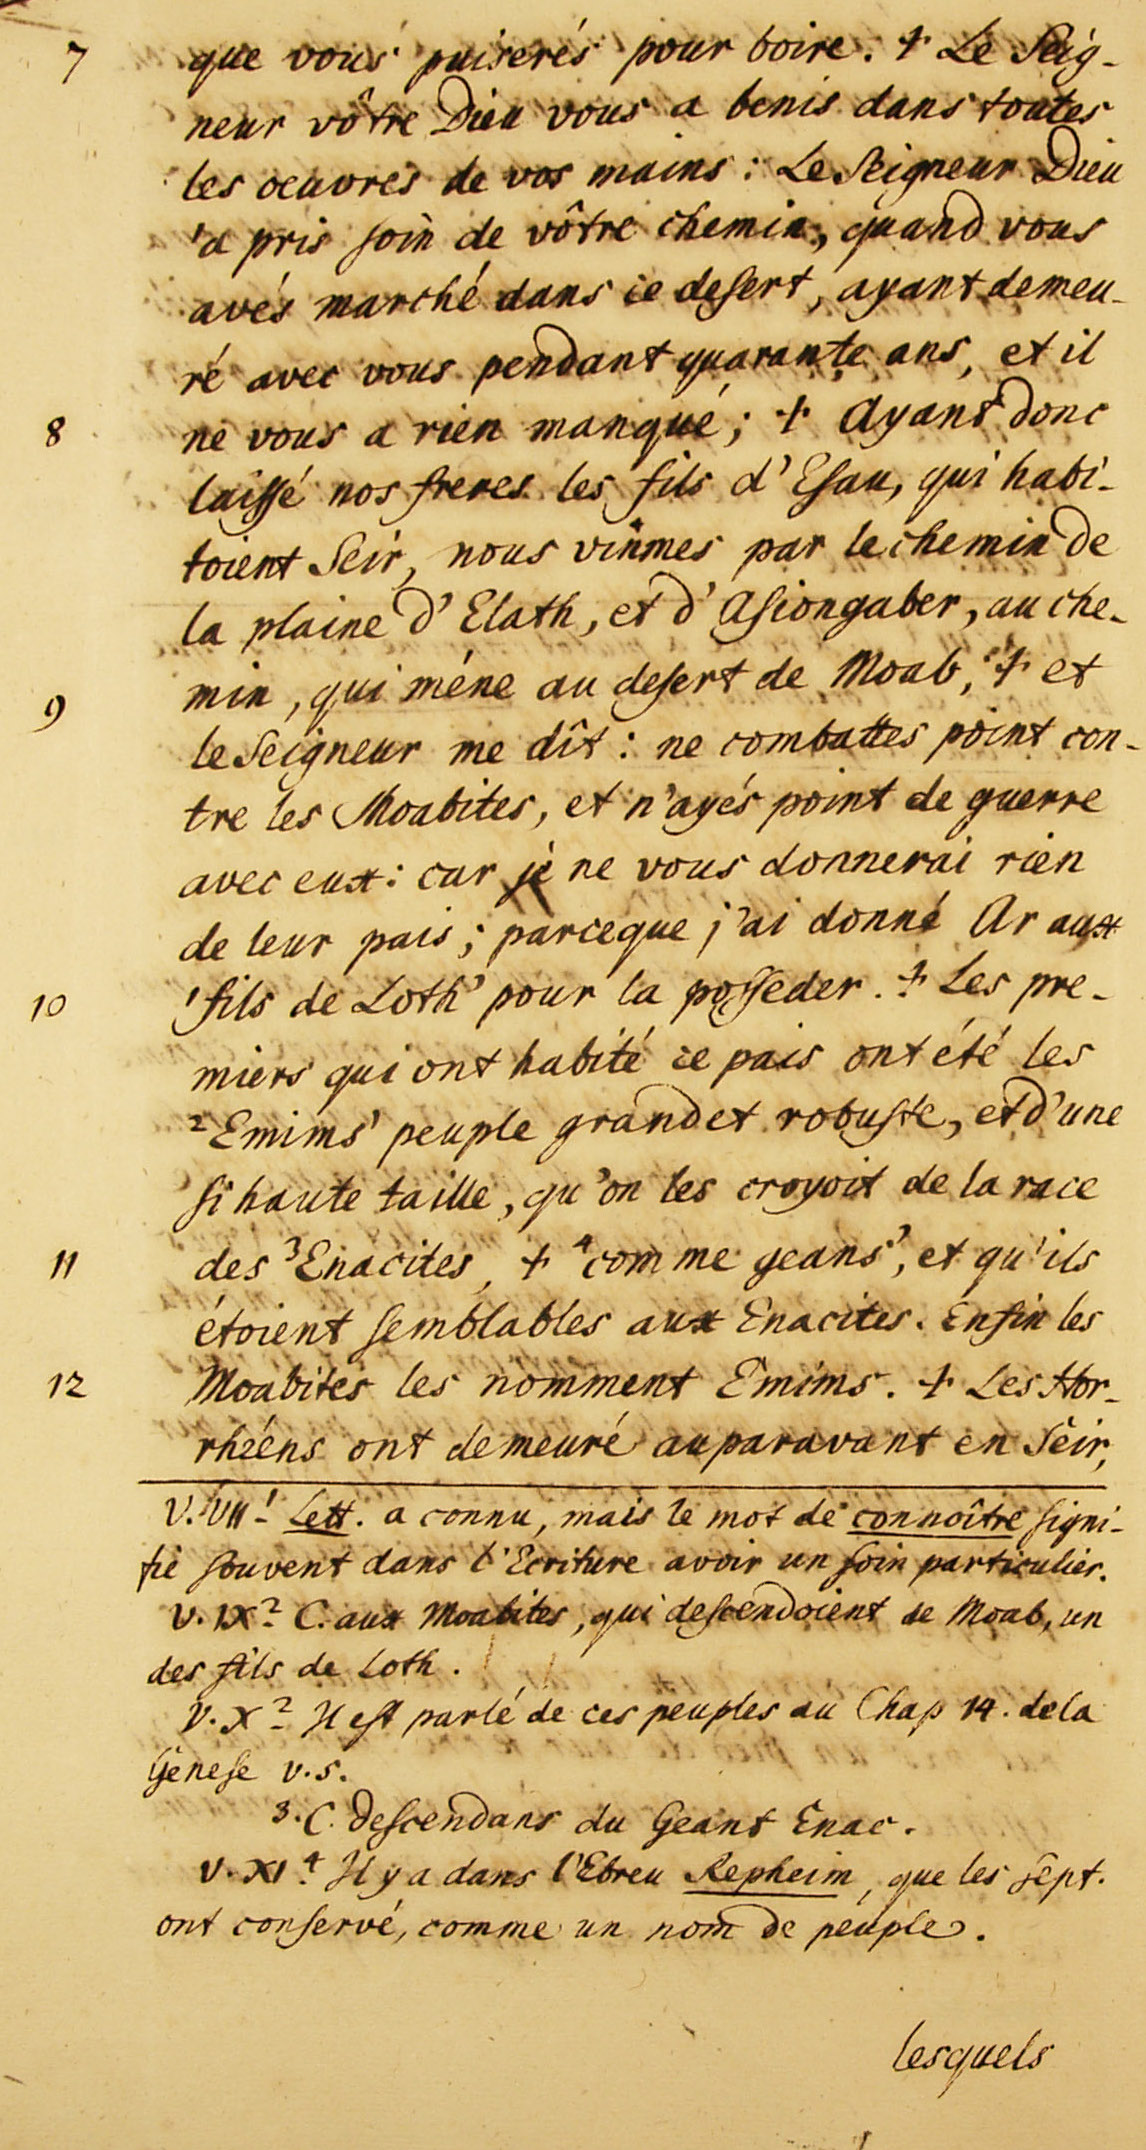 7 que vous puiserés pour boire. + Le Seig-
neur vôtre Dieu vous a benis dans toutes
les oeuvres de vos mains : Le Seigneur Dieu
'a pris soin de vôtre chemin, quand vous
avés marché dans ce desert, ayant demeu-
ré avec vous pendant quarante ans, et il
8 ne vous a rien manqué ; + Ayant donc
laissé nos freres les fils d'Esau, qui habi-
toient Seir, nous vinmes par le chemin de
la plaine d'Elath, et d'Asiongaber, au che-
min, qui méne au desert de Moab, + et
9 le Seigneur me dît : ne combattes point con-
tre les Moabites, et n'ayés point de guerre
avec eux : car je ne vous donnerai rien
de leur pais ; parceque j'ai donné Ar aux
10 'fils de Loth' pour la posseder. + Les pre-
miers qui ont habité ce pais ont été les
2 Emims' peuple grand et robuste, et d'une
si haute taille, qu'on les croyoit de la race
11 des 3 Enacites, + 4 comme geans', et qu'ils
étoient semblables aux Enacites. Enfin les
12 Moabites les nomment Emims. + Les Hor-
rhéens ont demeuré auparavant en Séir,
V. VII 1 Lett. a connu, mais le mot de connoître signi-
fie souvent dans l'Ecriture avoir un soin particulier.
V. IX 2 C. aux Moabites, qui descendoient de Moab, un
des fils de Loth.
V. X 2 Il est parlé de ces peuples au Chap 14. de la
Genese v. 5.
3. C. descendans du Geant Enac.
V. XI 4 Il y a dans l'Ebreu Repheim, que les sept.
ont conservé, comme un nom de peuple.
lesquels